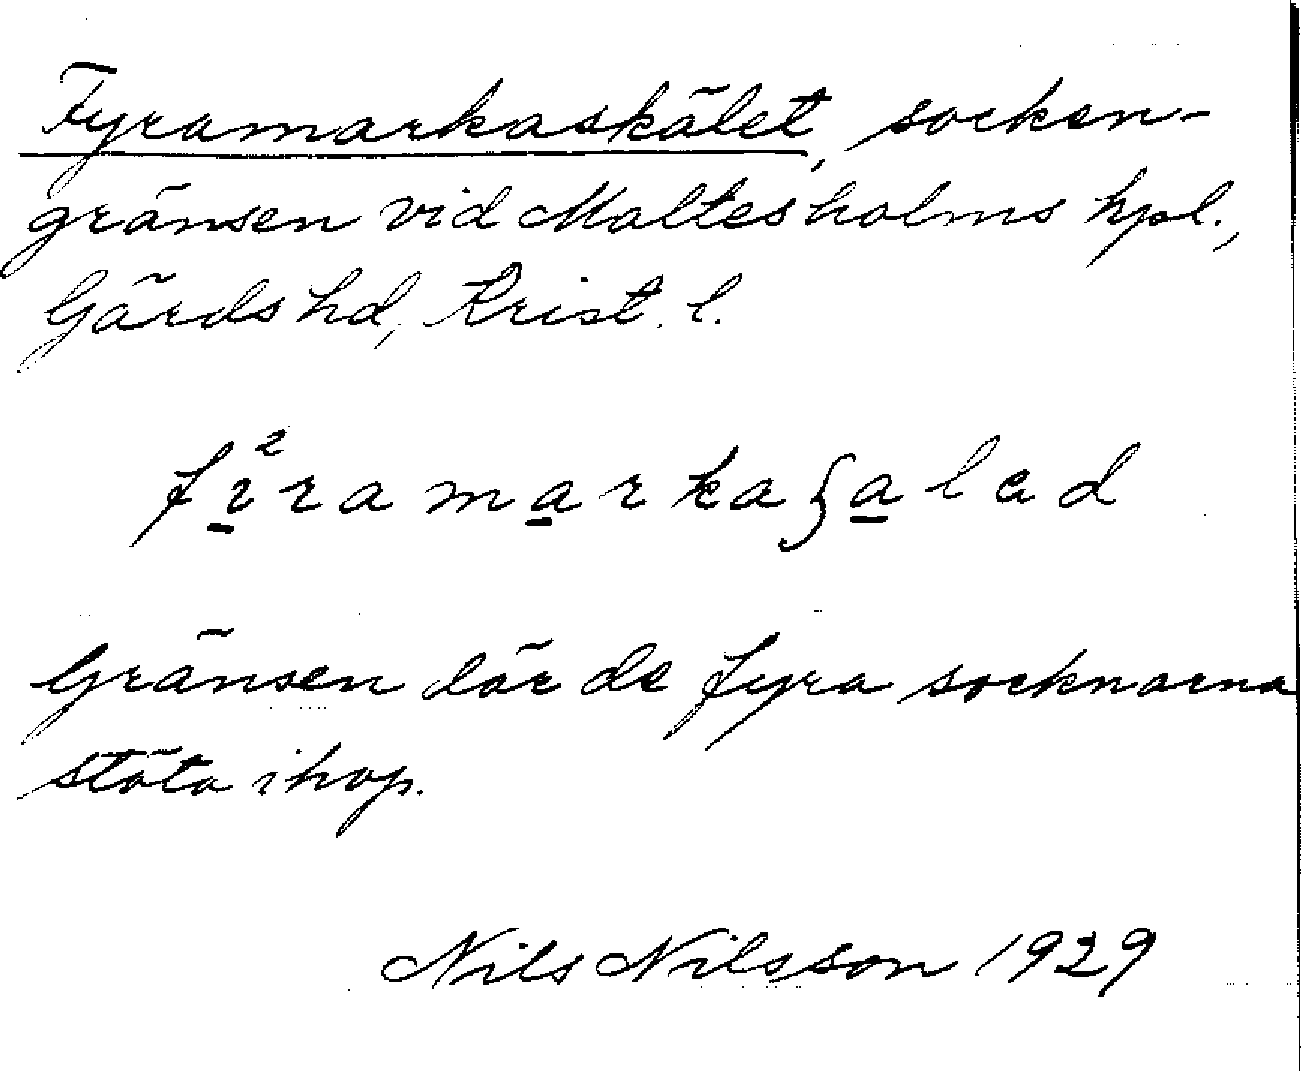 Fyramarkaskälet, socken-
gränsen vid Maltesholms hpl.,
Gärds hd, Krist. l.
fi²ramarkaʂalad
Gränsen där de fyra socknarna
stöta ihop.
Nils Nilsson 1929